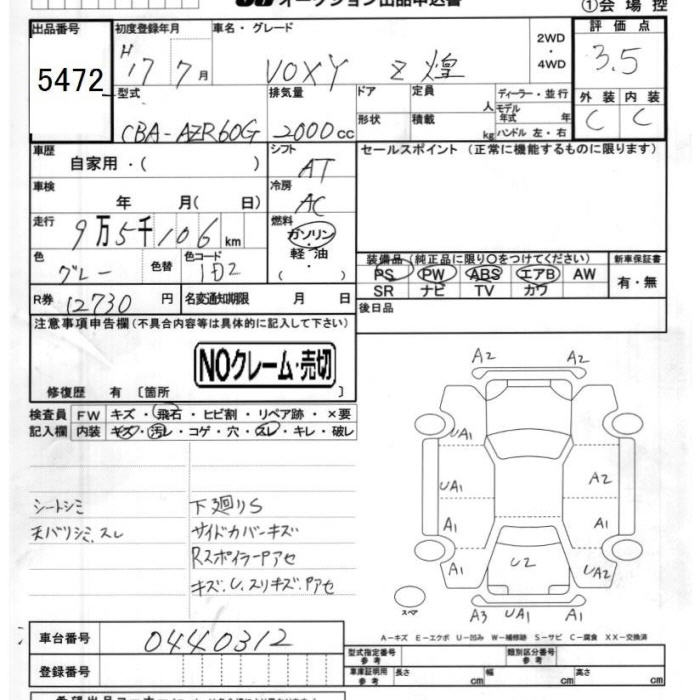 オークション出品申込書
①会場控
出品番号 5472
初度登録年月 H17 7月
車名・グレード VOXY Z 煌
2WD・4WD
評価点 3.5
外装 C 内装 C
型式 CBA-AZR60G
排気量 2000cc
ドア 形状
定員 人 積載 kg
ディーラー・並行
モデル年式 年
ハンドル 左・右
車歴 自家用・( )
シフト AT
セールスポイント (正常に機能するものに限ります)
車検 年 月( 日)
冷房 AC
走行 9万5千106km
燃料 ガソリン・軽油・( )
色 グレー 色替 色コード 1D2
装備品 (純正品に限り○をつけてください)
PS PW ABS エアB AW
SR ナビ TV カワ
新車保証書 有・無
R券 12730円
名変通知期限 月 日
後日品
注意事項申告欄(不具合内容等は具体的に記入して下さい)
NOクレーム・売切
修復歴 有 〔箇所 〕
検査員記入欄
FW キズ・飛石・ヒビ割・リペア跡・×要
内装 キズ・汚レ・コゲ・穴・スレ・キレ・破レ
シートシミ
天バリシミ、スレ
下廻りS
サイドカバーキズ
RスポイラーPアセ
キズ、U、スリキズ、Pアセ
A2 A2
UA1
UA1 A2
A1 A1
A1 U2 UA2
スペア
A3 UA1 A1
A-キズ E-エクボ U-凹み W-補修跡 S-サビ C-腐食 XX-交換済
車台番号 0440312
登録番号
型式指定番号 参考
類別区分番号 参考
車庫証明用 参考 長さ cm 幅 cm 高さ cm